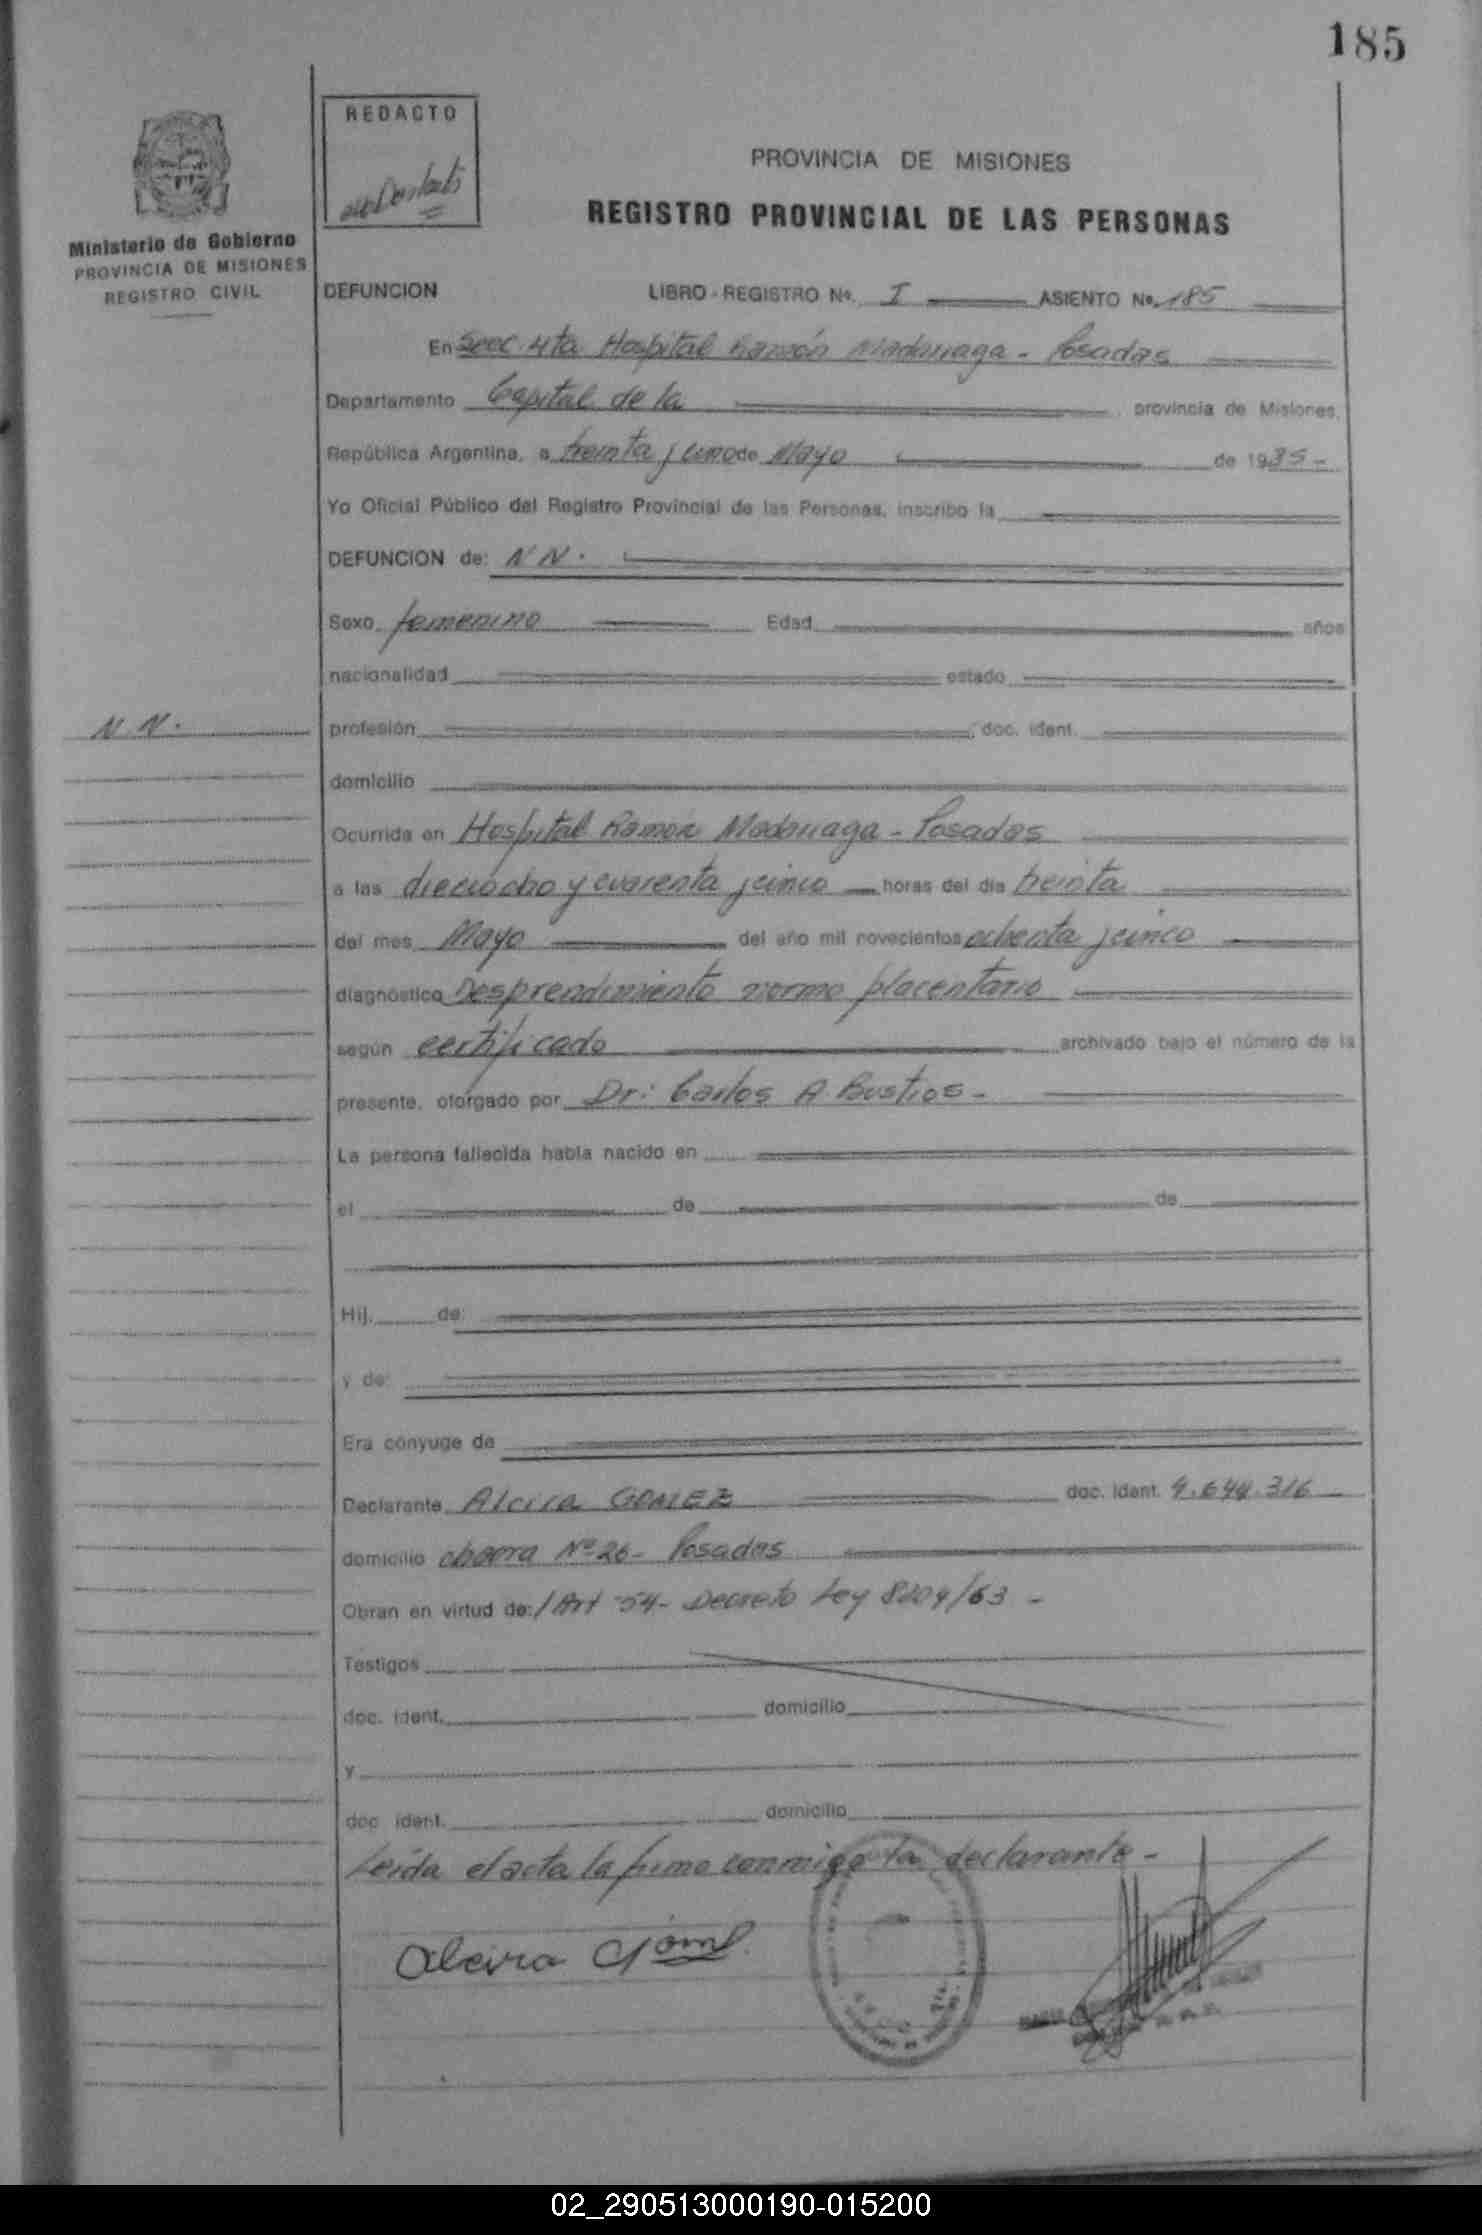 185
REDACTO
PROVINCIA DE MISIONES
REGISTRO PROVINCIAL DE LAS PERSONAS
Ministerio de Gobierno
PROVINCIA DE MISIONES
REGISTRO CIVIL
DEFUNCION LIBRO - REGISTRO Nº. I ASIENTO Nº. 185
En Secc. 4ta Hospital Ramón Madariaga - Posadas
Departamento Capital de la provincia de Misiones,
República Argentina, a treinta y uno de Mayo de 1985 -
Yo Oficial Público del Registro Provincial de las Personas, inscribo la
DEFUNCION de: N N.
Sexo femenino Edad años
nacionalidad estado
N. N.
profesión doc. ident.
domicilio
Ocurrida en Hospital Ramón Madariaga - Posadas
a las dieciocho y cuarenta y cinco horas del día treinta
del mes Mayo del año mil novecientos ochenta y cinco
diagnóstico Desprendimiento normo placentario
según certificado archivado bajo el número de la
presente, otorgado por Dr: Carlos A. Bustios -
La persona fallecida había nacido en
el de de
Hij. de:
y de:
Era cónyuge de
Declarante Alcira GOMEZ doc. ident. 4.644.316
domicilio chacra Nº 26 - Posadas
Obran en virtud de: / Art 54 - Decreto Ley 8204/63 -
Testigos
doc. ident. domicilio
y
doc. ident. domicilio
Leida el acta la firma conmigo la declarante -
Alcira Gómez
02_290513000190-015200